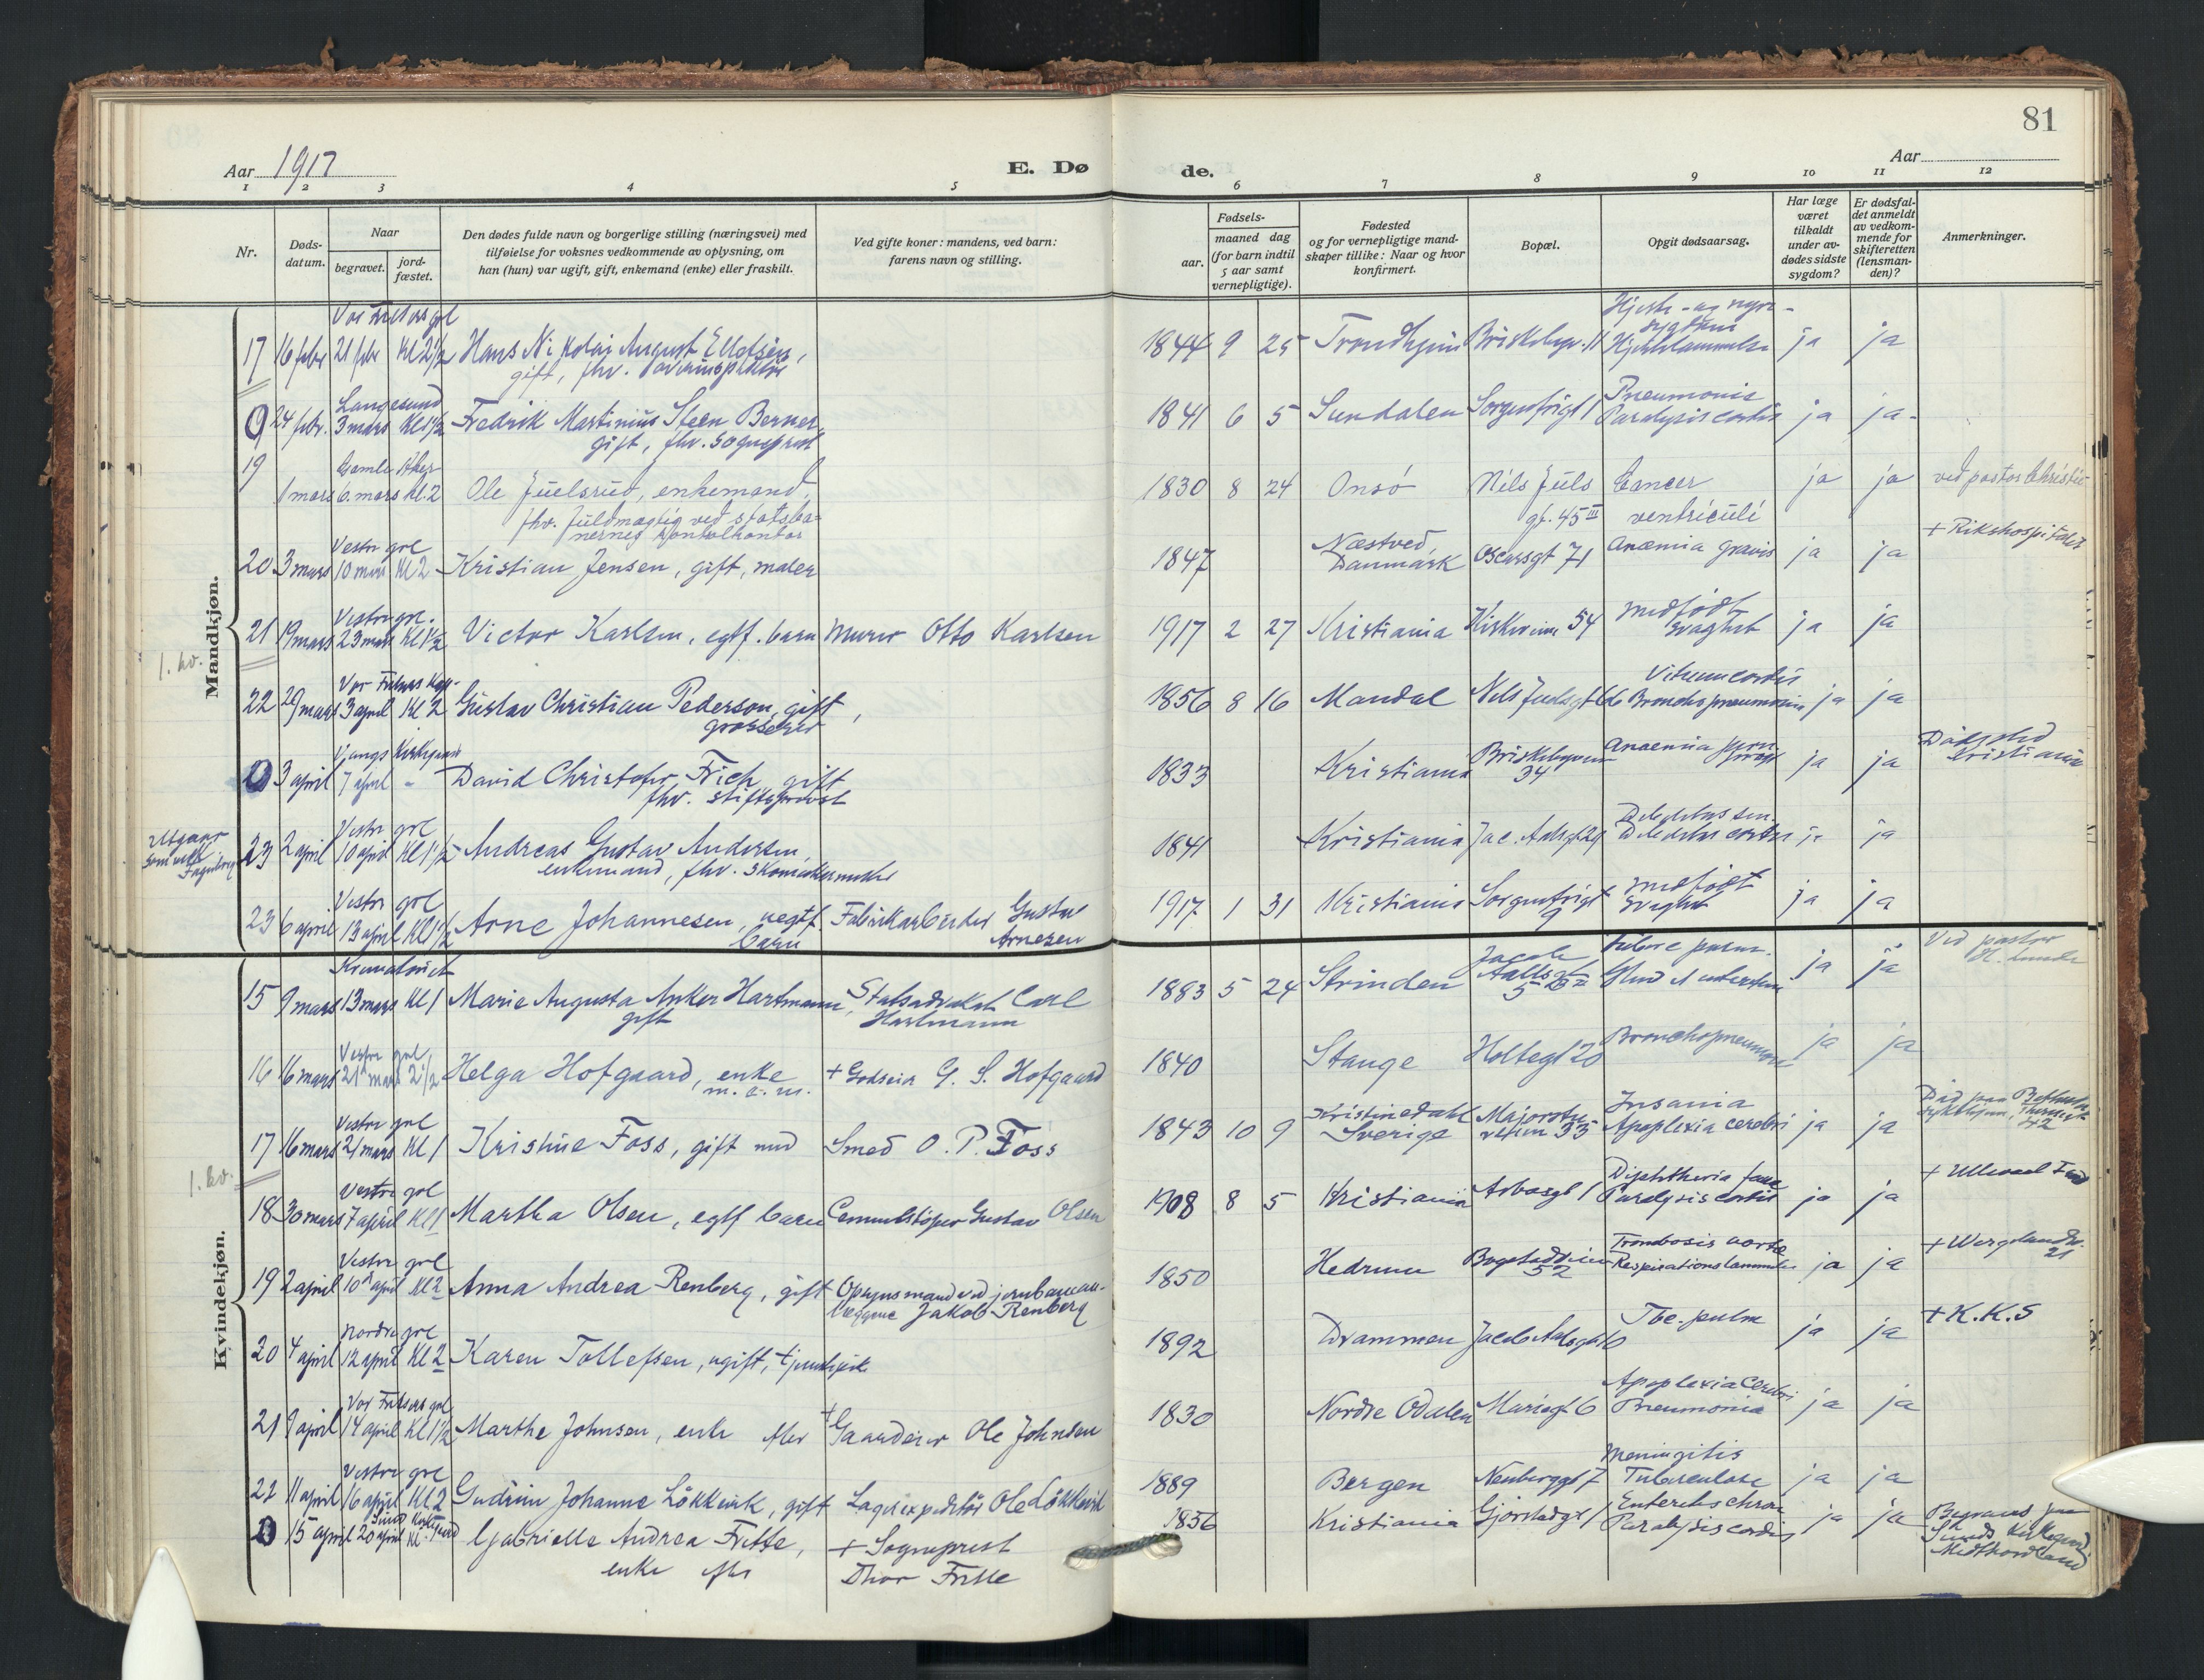 81
Aar 1917
E. Dø
de.
Aar
1 2 3 4 5 6 7 8 9 10 11 12
Nr.
Døds-
datum.
Naar
begravet.
jord-
fæstet.
Den dødes fulde navn og borgerlige stilling (næringsvei) med
tilføielse for voksnes vedkommende av oplysning, om
han (hun) var ugift, gift, enkemand (enke) eller fraskilt.
Ved gifte koner: mandens, ved barn:
farens navn og stilling.
Fødsels-
aar.
maaned dag
(for barn indtil
5 aar samt
vernepligtige).
Fødested
og for vernepligtige mand-
skaper tillike: Naar og hvor
konfirmert.
Bopæl.
Opgit dødsaarsag.
Har læge
været
tilkaldt
under av-
dødes sidste
sygdom?
Er dødsfal-
det anmeldt
av vedkom-
mende for
skifteretten
(lensman-
den)?
Anmerkninger.
Mandkjøn.
Vor Frelsers grl
17 16 febr 21 febr Kl 2 1/2 Hans Nikolai August Ellefsen, 1844 9 25 Trondhjem Briskebyv. 11 ja ja
gift, fhv.
Langesund Pneumonia
0 24 febr. 3 mars Kl 1 1/2 Fredrik Martinius Steen Berner, 1841 6 5 Sundalen Sorgenfrigt 1 Paralysis cordis ja ja
gift, fhv. Sogneprest
19 Gamle Aker
1 mars 6 mars Kl. 2 Ole Juelsrud, enkemand, 1830 8 24 Onsö Nils Juels Cancer ja ja ved pastor Christie
fhv. fuldmægtig ved statsba- gt. 45 III ventriculi
nernes kontrolkontor
Vestre grl Næstved + Rikshospitalet
20 3 mars 10 mars Kl 2 Kristian Jensen, gift, maler 1847 Danmark Oscarsgt 71 Anæmia gravis ja ja
Vestre grl. medfödt
21 19 mars 23 mars Kl 1 1/2 Victor Karlsen, egtf. barn Murer Otto Karlsen 1917 2 27 Kristiania Kirkeveien 54 svaghet ja ja
1. kv.
Vor Frelsers Kap. Vitium cordis
22 29 mars 3 april Kl 2 Gustav Christian Pederson, gift, 1856 8 16 Mandal Nils Juelsgt Bronchopneumonia ja ja
grosserer
Vangs Kirkegaard Briskebyveien Anaemia
0 3 april 7 april - David Christofer Frich, gift 1833 Kristiania 34 ja ja Dödssted Kristiania
fhv. stiftsprovst
Utgaar Vestre grl
23 2 april 10 april Kl 1 1/2 Andreas Gustav Andersen, 1841 Kristiania Jac. Aalsgt 29 ja ja
enkemand, fhv. skomakermester
Vestre grl medfödt
23 6 april 13 april Kl 1 1/2 Arne Johannesen, uegtf Fabrikarbeider Gustav 1917 1 31 Kristiania Sorgenfrigt svaghet ja ja
barn Arnesen 9
Kvindekjøn.
Krematoriet Jacob Ved pastor
15 9 mars 13 mars Kl 1 Marie Augusta Anker Hartmann, Statsadvokat Carl 1883 5 24 Strinden Aallsgt ja ja H. Lunde
gift Hartmann
Vestre grl
16 16 mars 21 mars 2 1/2 Helga Hofgaard, enke + Godseier G. S. Hofgaard 1840 Stange Holtegt 20 Bronchopneumoni ja ja
Vestre grl Kristinedahl Majorstu Insania
17 16 mars 21 mars Kl 1 Kristine Foss, gift med Smed O. P. Foss 1843 10 9 Sverige veien 35 Apoplexia cerebri ja ja
1. kv.
Vestre grl + Ullevaal
18 30 mars 7 april Kl 1 Martha Olsen, egtf barn Cementstöper Gustav Olsen 1908 8 5 Kristiania Arbosgt 1 Paralysis cordis ja ja
Vestre grl Trombosis aorta + Wergelandsv. 21
19 2 april 10 april Kl 2 Anna Andrea Renberg, gift Opsynsmand ved jernbanean- 1850 Hedrum Bogstadveien Respirationslammelse ja ja
læggene Jakob Renberg 52
Nordre grl
20 4 april 12 april Kl 2 Karen Tollefsen, ugift, tjenestepike 1892 Drammen Jacob Aalsgt 10 Tbc. pulm ja ja + K.K.S
Vor Frelsers grl Apoplexia Cerebri
21 9 april 14 april Kl 1 1/2 Marthe Johnsen, enke efter + Gaardeier Ole Johnsen 1830 Nordre Odalen Mariegt 6 Pneumonia ja ja
Vestre grl Meningitis
22 11 april 16 april Kl 2 Gudrun Johanne Lökkevik, gift Lagerexpeditör Ole Lökkevik 1889 Bergen Neuberggt 7 Tuberculose ja ja
Sund Kirkegaard
0 15 april 20 april Gabrielle Andrea Frette, + Sogneprest 1856 Kristiania Gjörstadgt 1 Paralysis cordis ja ja Begraves paa
enke efter Thor Frette Sunds Kirkegaard
Midthordland